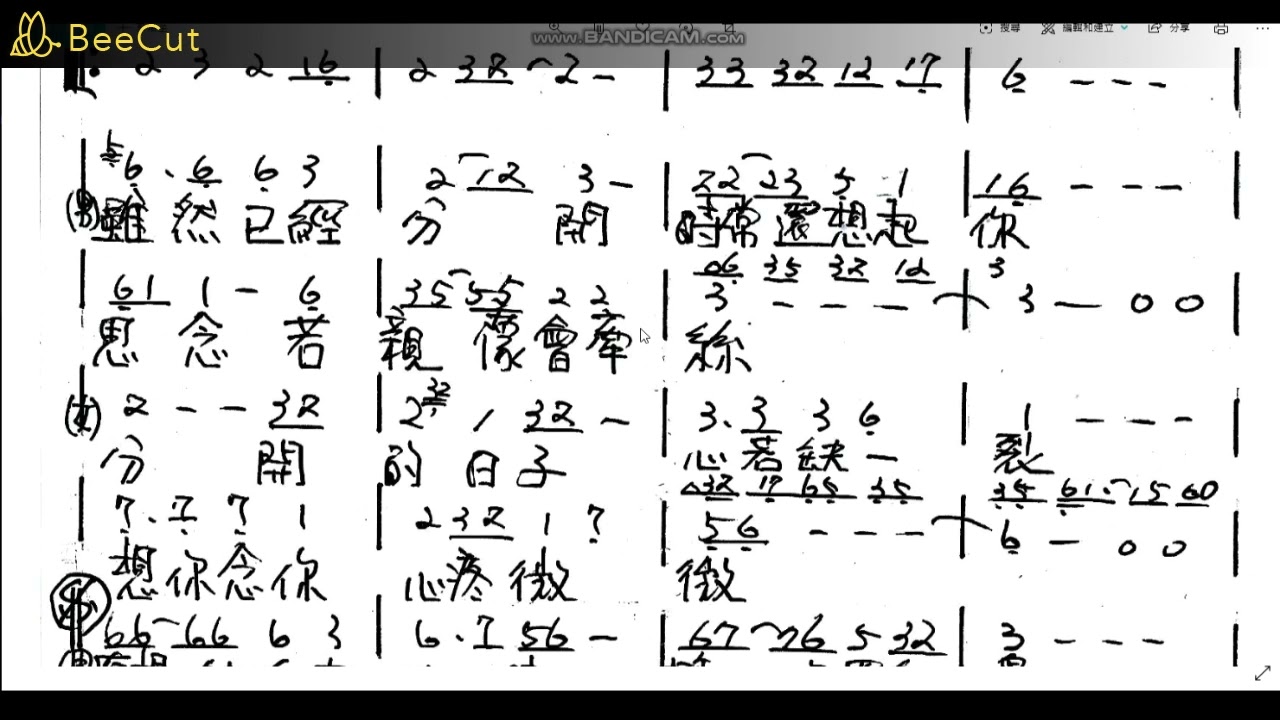 BeeCut
WWW.BANDICAM.COM
搜尋 編輯和建立 分享
2 3 2 16 | 2 32 2 - | 33 32 12 17 | 6 - - -
6 . 6 6 3 | 2 12 3 - | 22 23 5 1 | 16 - - -
(男) 雖然已經 分開 時常還想起 你
06 35 32 12 3
61 1 - 6 | 35 55 2 2 | 3 - - - | 3 - 0 0
思念若 親像會牽 絲
(女) 2 - - 32 | 2 32 1 32 - | 3. 3 3 6 | 1 - - -
分開 的日子 心若缺一 裂
032 17 65 35 35 61. 15 60
7. 7 7 1 | 2 32 1 7 | 56 - - - | 6 - 0 0
想你念你 心疼微 微
66 66 6 3 | 6 . 7 56 - | 67 76 5 32 | 3 - - -